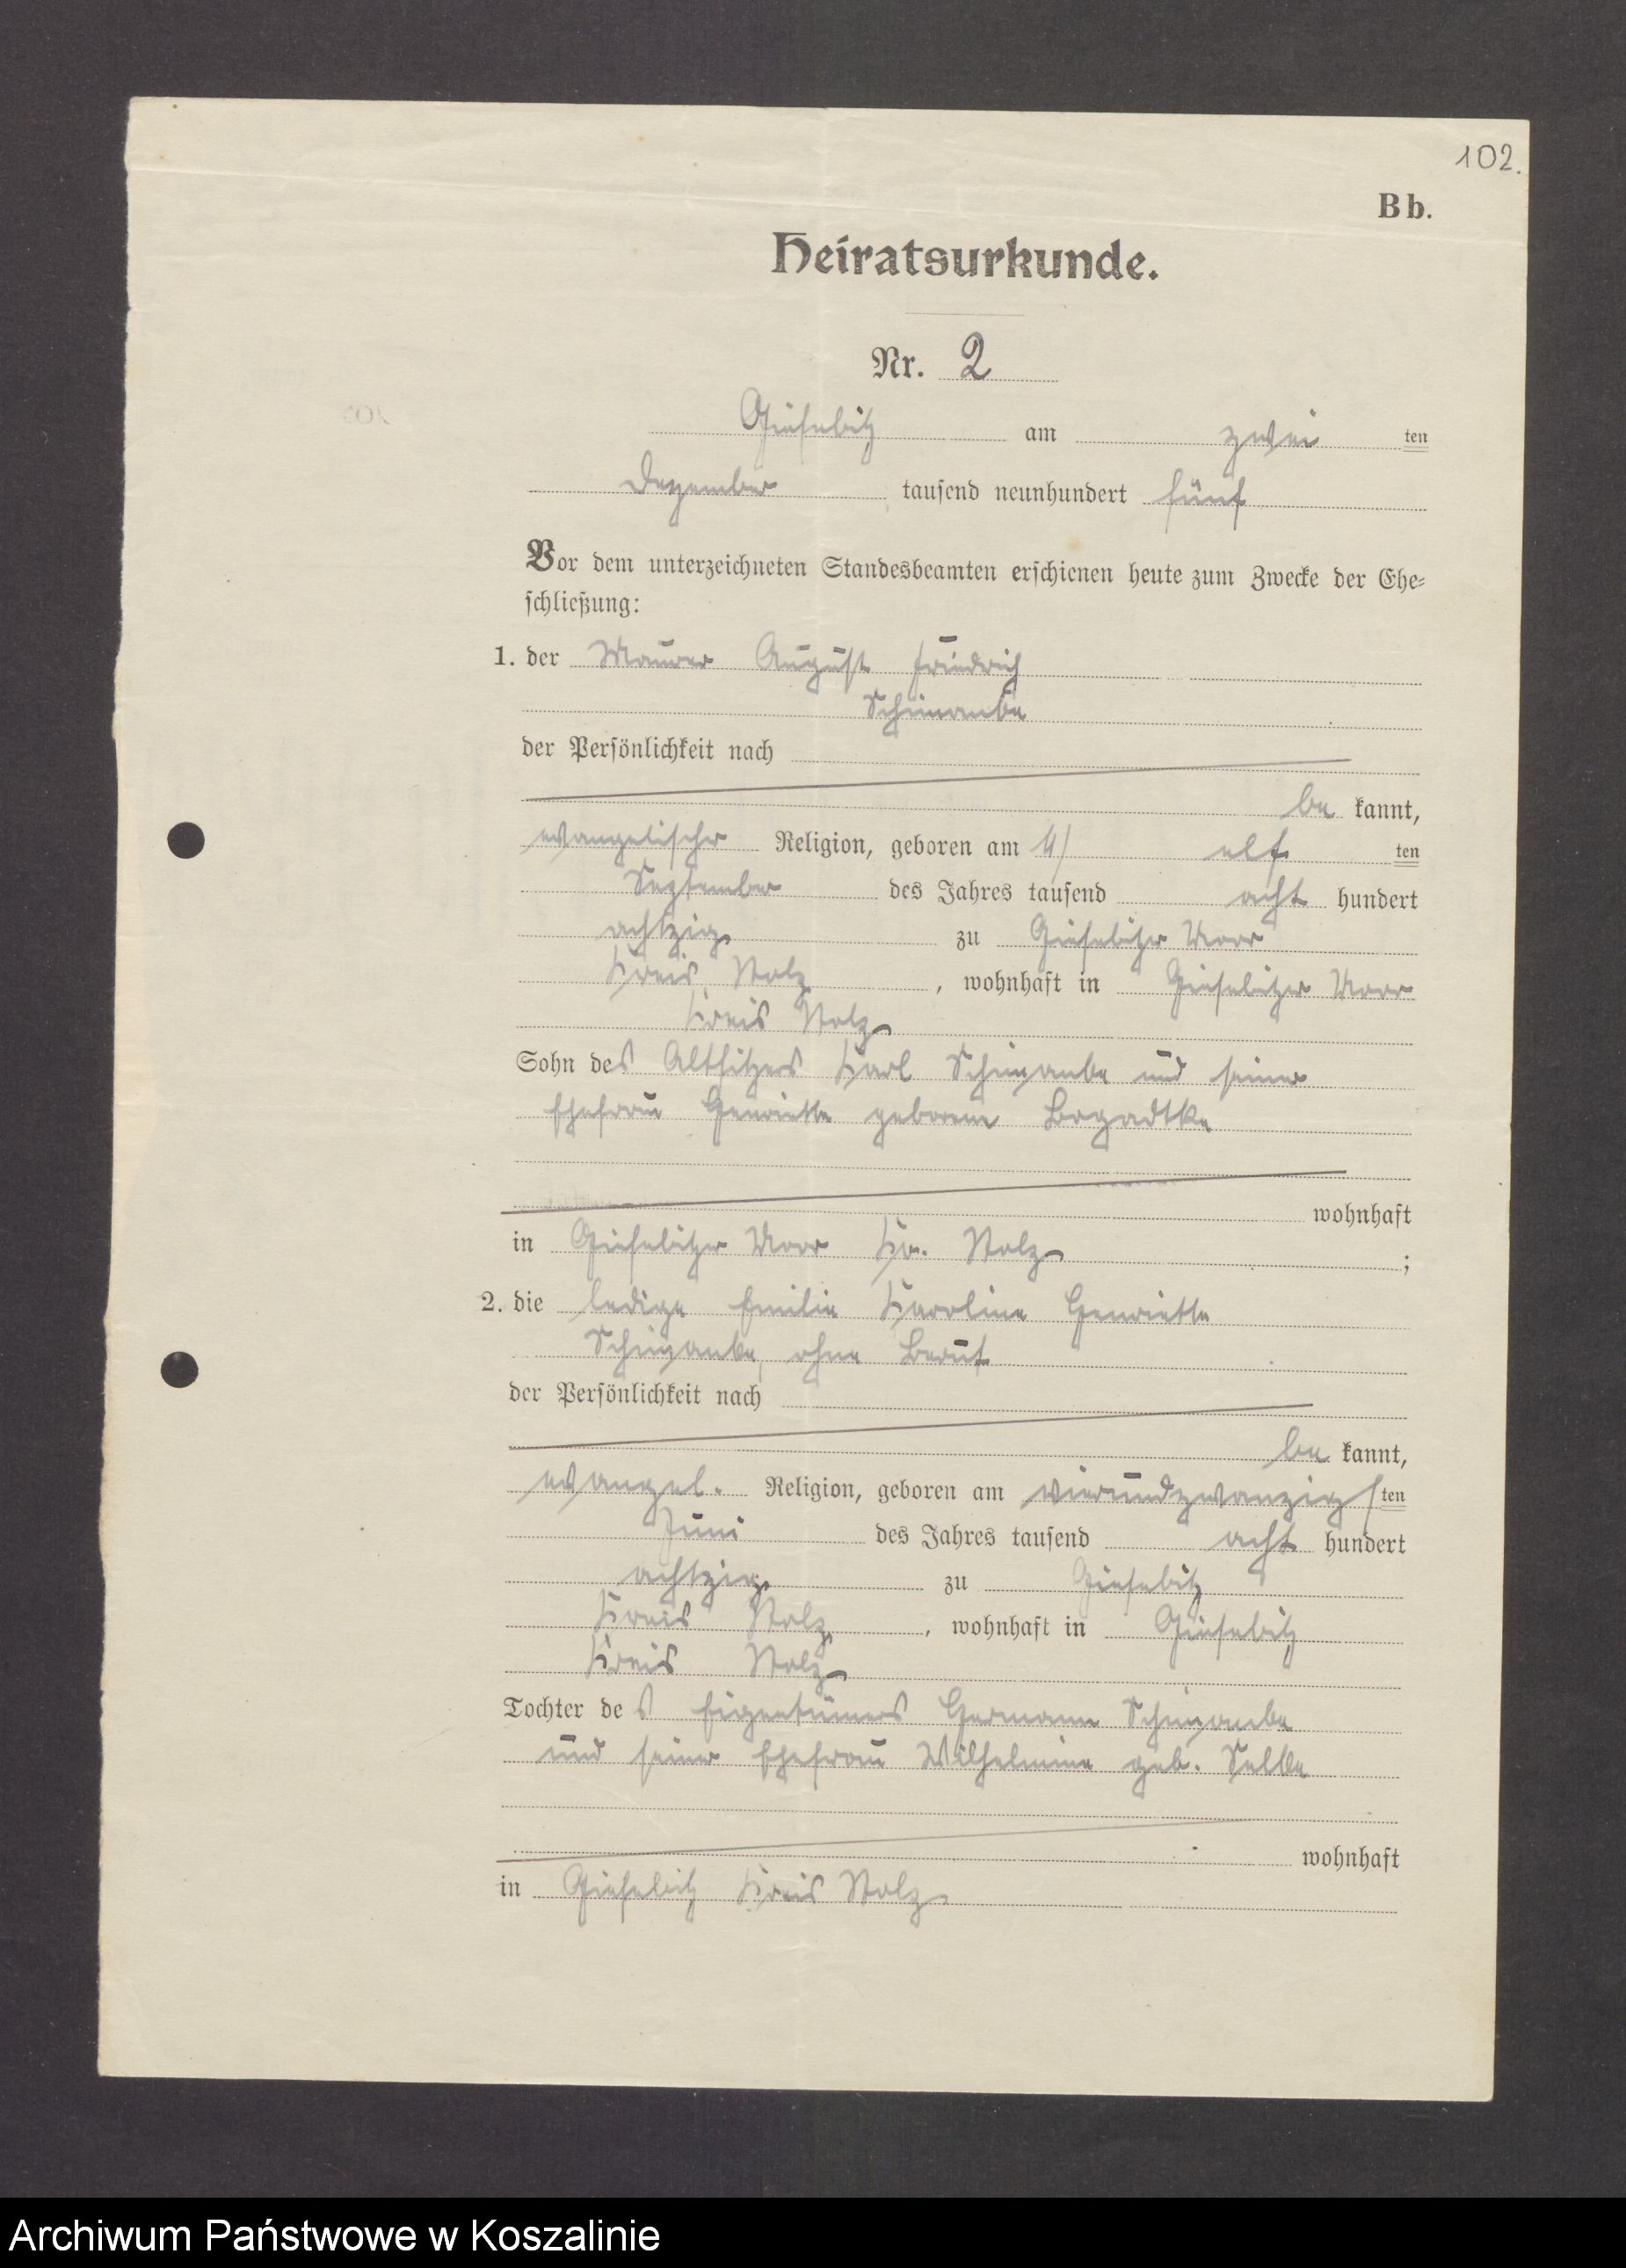 102.
Bb.
Heiratsurkunde.
Nr. 2
Giesebitz am zwei ten
Dezember tausend neunhundert fünf
Vor dem unterzeichneten Standesbeamten erschienen heute zum Zwecke der Ehe=
schließung:
1. der Maurer August Friedrich
der Persönlichkeit nach
be kannt,
evangelischer Religion, geboren am elf ten
September des Jahres tausend acht hundert
achtzig zu Giesebitzer Moor
Kreis Stolp, wohnhaft in Giesebitzer Moor
Kreis Stolp
Sohn des Altsitzers Karl und seiner
Ehefrau Henriette geborene
wohnhaft
in Giesebitzer Moor Kr. Stolp ;
2. die ledige Emilie Karoline Henriette
ohne Beruf
der Persönlichkeit nach
be kannt,
evangel. Religion, geboren am vierundzwanzigsten
Juni des Jahres tausend acht hundert
achtzig zu Giesebitz
Kreis Stolp, wohnhaft in Giesebitz
Kreis Stolp
Tochter des Eigentümers Hermann
und seiner Ehefrau Wilhelmine geb.
wohnhaft
in Giesebitz Kreis Stolp
Archiwum Państwowe w Koszalinie